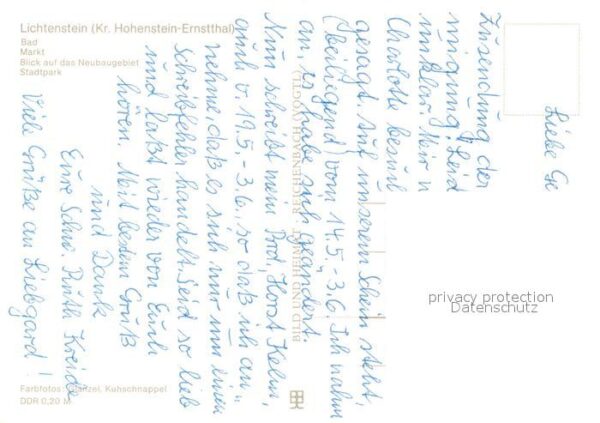 Lichtenstein (Kr. Hohenstein-Ernstthal)
Bad
Markt
Blick auf das Neubaugebiet
Stadtpark
Liebe Ge
Zusendung der
nigung! Seid
unklar. Mir u
Charlotte
gesagt. Auf unserem Schein steht,
(beiliegend) vom 14.5.-3.6. Ich nahm
an, es habe sich geändert.
Nun schreibt mein Horst Kelm,
auch v. 19.5.-3.6., so daß ich an-
nehme, daß es sich nur um einen
Schreibfehler handelt. Seid so lieb
und laßt wieder von Euch
hören. Mit bestem Gruß
und Dank
Eure Schw. Ruth Kreide
Viele Grüße an Liebgard!
BILD UND HEIMAT REICHENBACH (VOGTL)
Farbfotos: Kuhschnappel
DDR 0,20 M
privacy protection
Datenschutz